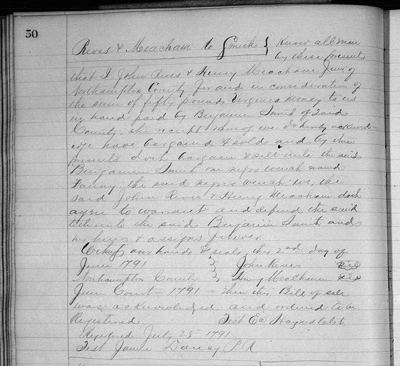 50
Rives & Meacham to Smith } Know all men
by these presents
that I John Rives & Henry Meacham Jun'r of
Northampton County for and in consideration of
the sum of fifty pounds Virginia Money to us
in hand paid by Benjamin Smith of
County the receipt whereof we do hereby acknowl-
edge have bargained & sold and by these
presents doth bargain & sell unto the said
Benjamin Smith one negro wench named
the said negro wench we, the
said John Rives & Henry Meacham doth
agree to warrant and defend the said
unto the said Benjamin Smith and
his heirs & assigns forever
Witness our hands & seals this 2nd day of
June 1791 } John Rives
Northampton County } Henry Meacham
June Court 1791 Then this Bill of sale
was acknowledged and ordered to be
Registered Test
Registered July 25 1791
Test James